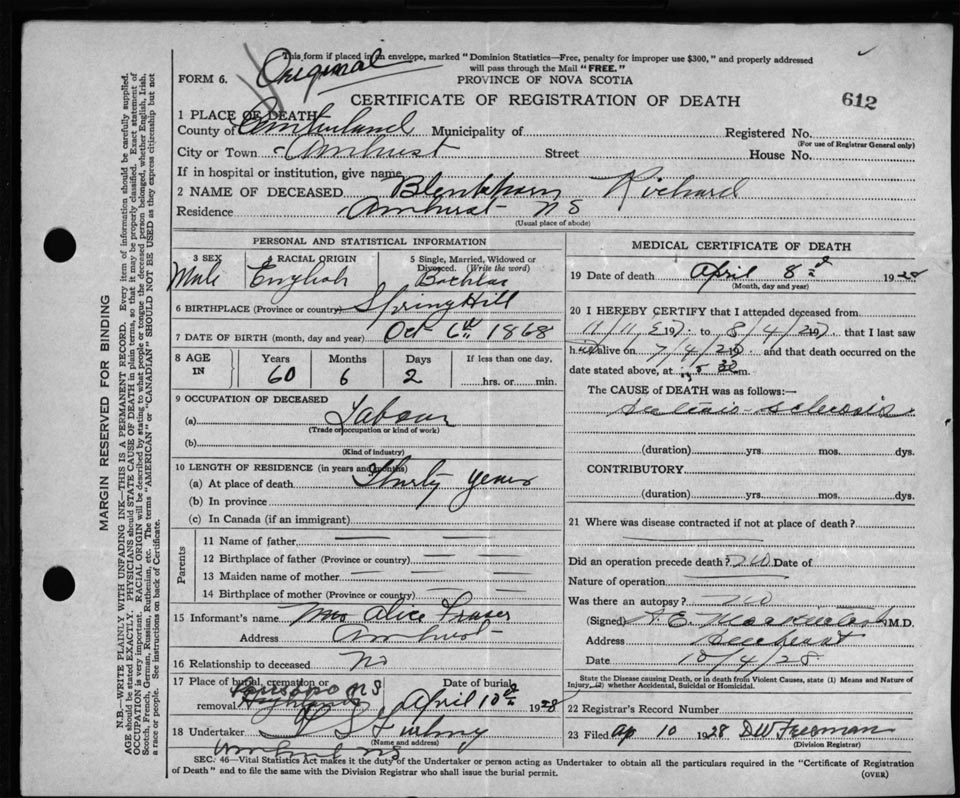 This form if placed in an envelope, marked "Dominion Statistics—Free, penalty for improper use $300," and properly addressed
will pass through the Mail "FREE."
Original
FORM 6.
PROVINCE OF NOVA SCOTIA
CERTIFICATE OF REGISTRATION OF DEATH
612
1 PLACE OF DEATH
County of Cumberland Municipality of Registered No.
(For use of Registrar General only)
City or Town Amherst Street House No.
If in hospital or institution, give name
2 NAME OF DECEASED Blenkhorn Richard
Residence Amherst NS
(Usual place of abode)
PERSONAL AND STATISTICAL INFORMATION
3 SEX 4 RACIAL ORIGIN 5 Single, Married, Widowed or
Divorced. (Write the word)
Male English Bachlar
6 BIRTHPLACE (Province or country) Spring Hill
7 DATE OF BIRTH (month, day and year) Oct 6th 1868
8 AGE IN Years Months Days If less than one day,
60 6 2 hrs. or min.
9 OCCUPATION OF DECEASED
(a) Labour
(Trade or occupation or kind of work)
(b)
(Kind of industry)
10 LENGTH OF RESIDENCE (in years and months)
(a) At place of death Thirty years
(b) In province
(c) In Canada (if an immigrant)
Parents
11 Name of father
12 Birthplace of father (Province or country)
13 Maiden name of mother
14 Birthplace of mother (Province or country)
15 Informant's name Mrs Alice Fraser
Address Amherst
16 Relationship to deceased No
17 Place of burial, cremation or Date of burial
removal NS April 10th 1928
18 Undertaker
(Name and address)
Amherst NS
MEDICAL CERTIFICATE OF DEATH
19 Date of death April 8 1928
(Month, day and year)
20 I HEREBY CERTIFY that I attended deceased from
to 8/4/28, that I last saw
h alive on 7/4/28 and that death occurred on the
date stated above, at m.
The CAUSE of DEATH was as follows:—
sclerosis
(duration) yrs. mos. dys.
CONTRIBUTORY
(duration) yrs. mos. dys.
21 Where was disease contracted if not at place of death?
Did an operation precede death? no Date of
Nature of operation
Was there an autopsy? no
(Signed) M.D.
Address Amherst
Date 10/4/28
State the Disease causing Death, or in death from Violent Causes, state (1) Means and Nature of
Injury, (2) whether Accidental, Suicidal or Homicidal.
22 Registrar's Record Number
23 Filed Ap 10 1928 D W Freeman
(Division Registrar)
SEC. 46—Vital Statistics Act makes it the duty of the Undertaker or person acting as Undertaker to obtain all the particulars required in the "Certificate of Registration
of Death" and to file the same with the Division Registrar who shall issue the burial permit.
(OVER)
MARGIN RESERVED FOR BINDING
N.B.—WRITE PLAINLY WITH UNFADING INK—THIS IS A PERMANENT RECORD. Every item of information should be carefully supplied.
AGE should be stated EXACTLY. PHYSICIANS should STATE CAUSE OF DEATH in plain terms, so that it may be properly classified. Exact statement of
OCCUPATION is very important. RACIAL ORIGIN will be described by stating to what people or tongue the deceased person belonged, whether English, Irish,
Scotch, French, German, Russian, Ruthenian, etc. The terms "AMERICAN" or "CANADIAN" SHOULD NOT BE USED as they express citizenship but not
a race or people. See instructions on back of Certificate.